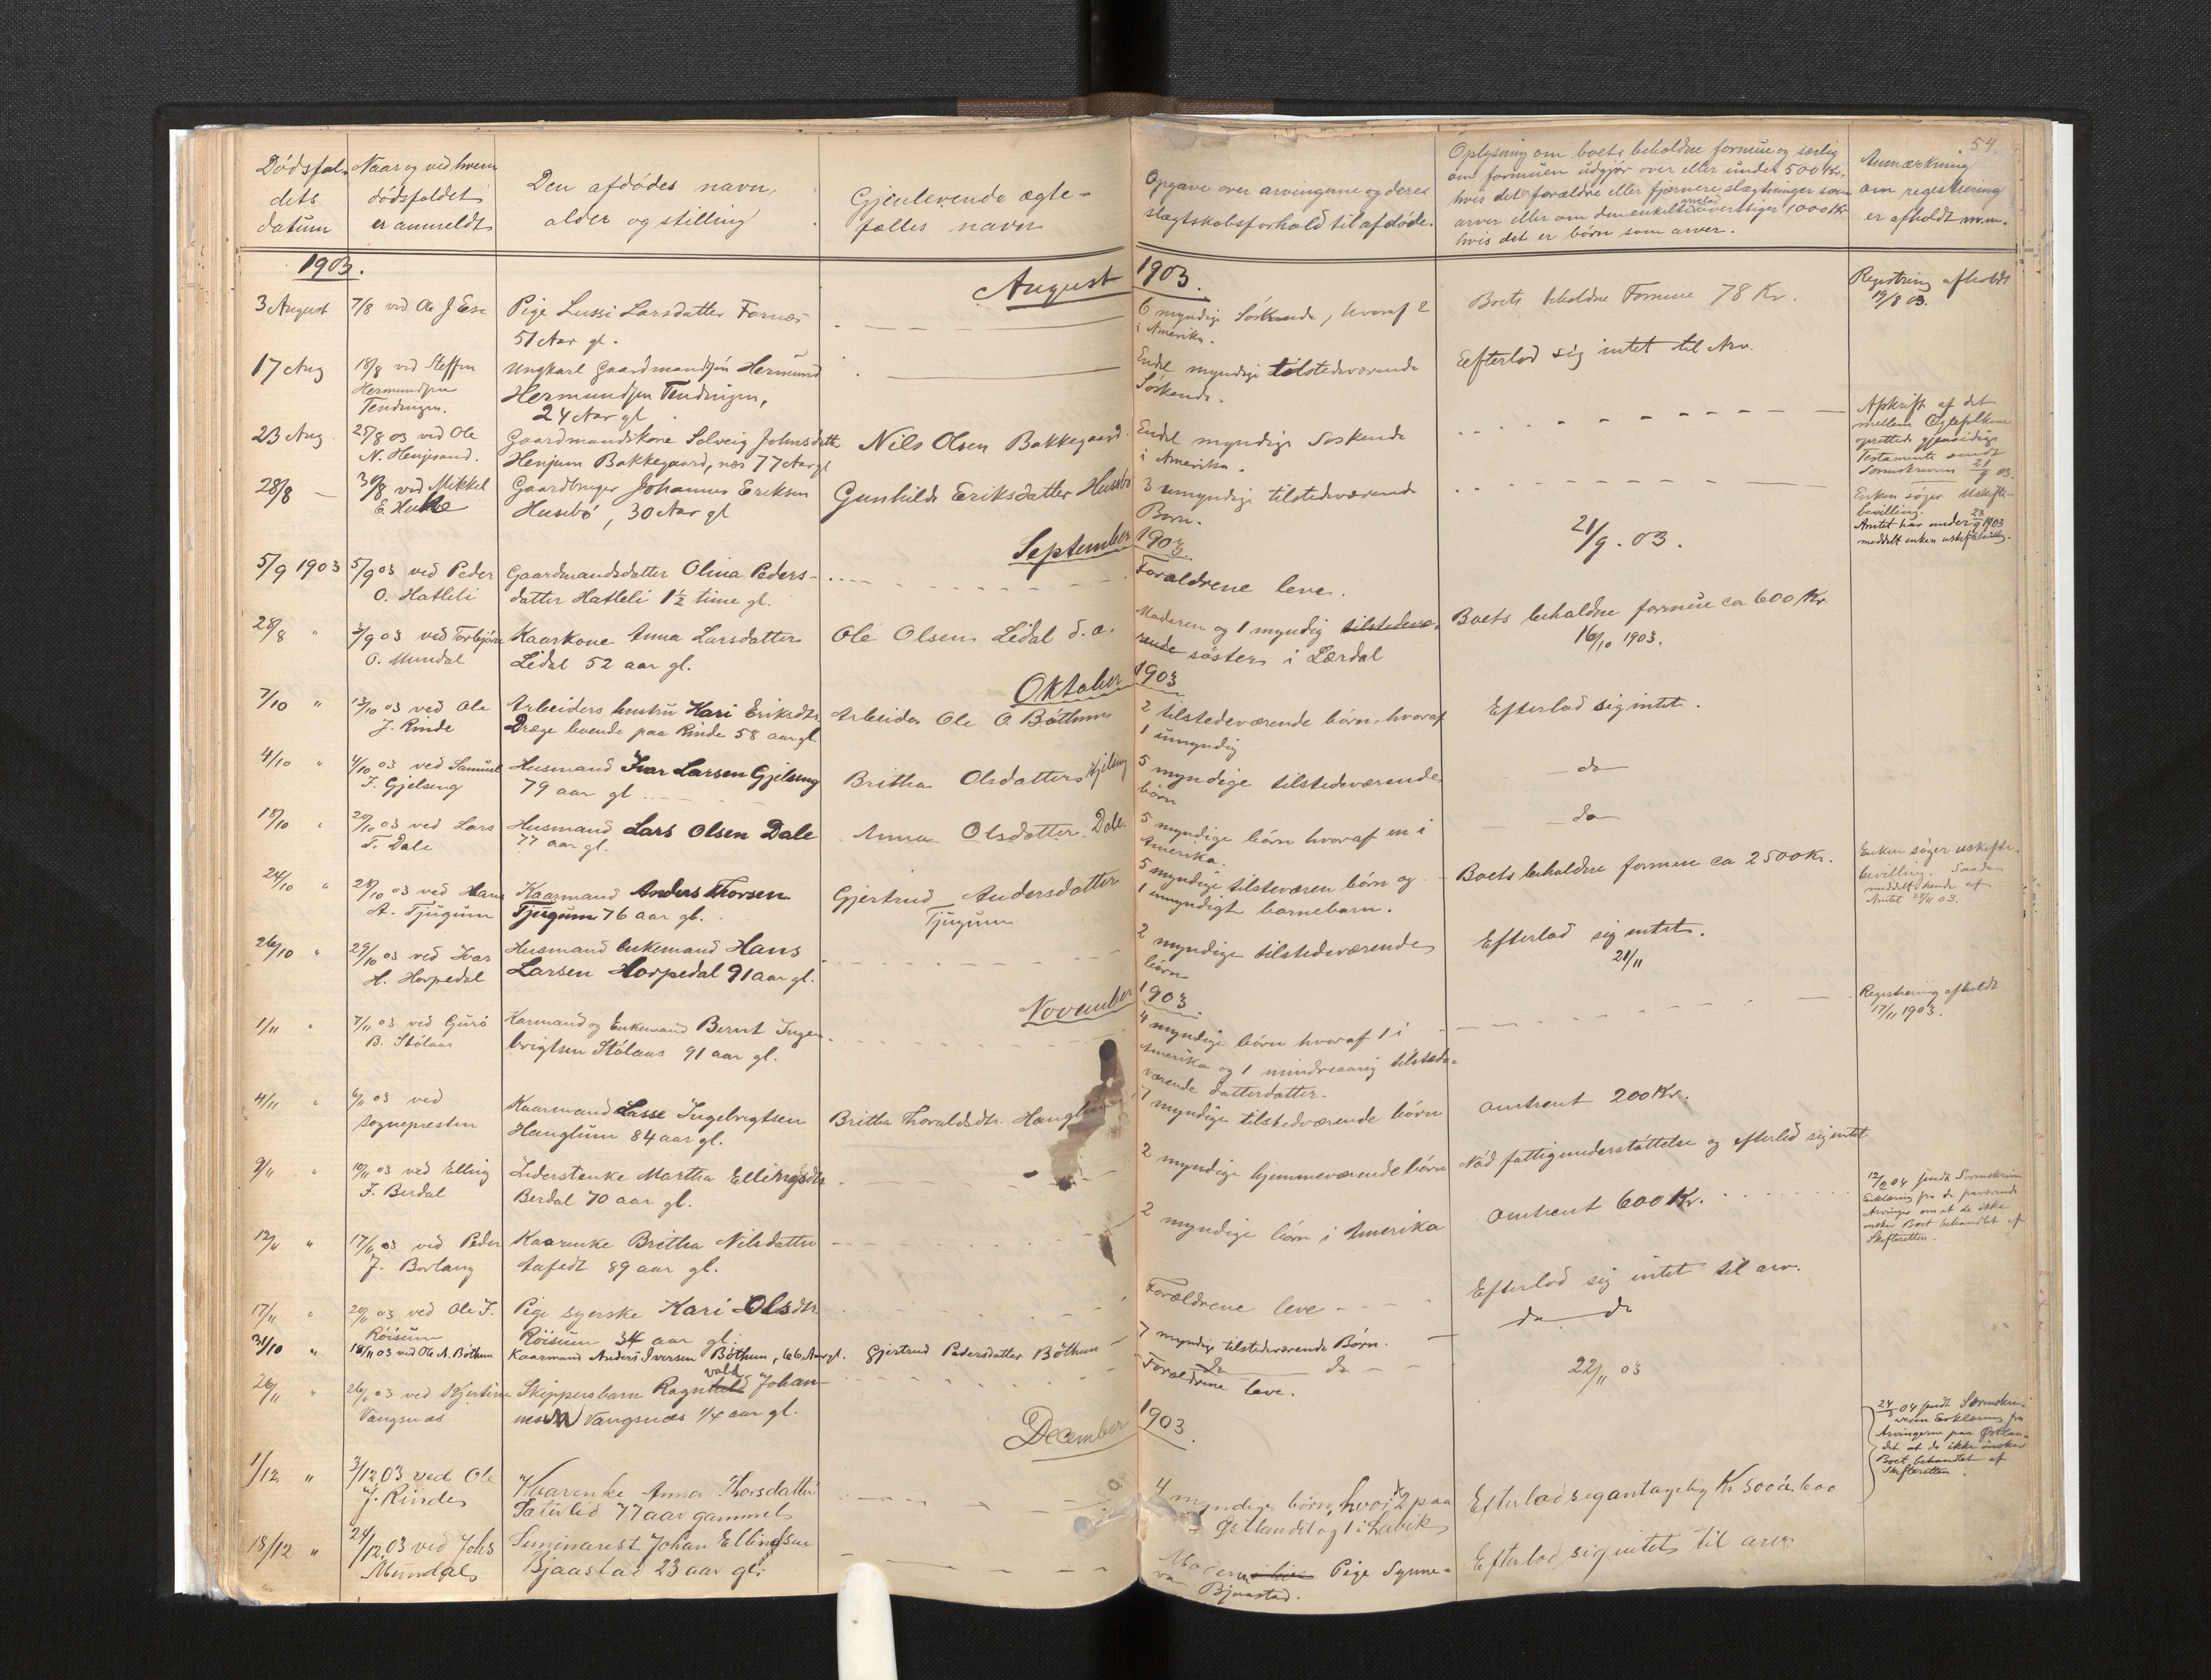 54.
Dödsfal-
dets
datum
Naar og ved hvem
dödsfaldet
er anmeldt
Den afdödes navn,
alder og stilling
Gjenlevende ægte-
fælles navn
Opgave over arvingerne og deres
slægtskabsforhold til afdöde.
Oplysning om boets beholdne formue og særlig
om formuen udgjör over eller under 500 Kr.
hvis det er forældre eller fjernere slægtninger som
arver eller om den enkeltes overstiger 1000 Kr
hvis det er börn som arver.
Anmærkning
om registrering
er afholdt m.m.
1903.
August 1903.
3 August
7/8 ved Ole J Ese
Pige Lussi Larsdatter Fornæs
51 Aar gl.
6 myndige Söskende, hvoraf 2
i Amerika.
Boets beholdne Formue 78 Kr.
Registrering afholdt
19/8 03.
17 Aug
18/8 ved Steffen
Hermundsen
Tendingen.
Ungkarl Gaardmandssön Hermund
Hermundsen Tendingen,
24 Aar gl
Endel myndige tilstedeværende
Söskende.
Efterlod sig intet til Arv.
23 Aug.
25/8 03 ved Ole
N. Henjesand.
Gaardmandskone Solveig Johnsdatter
Henjum Bakkegaard, nær 77 Aar gl
Nils Olsen Bakkegaard.
Endel myndige Söskende
i Amerika.
Afskrift af det
mellem Ægtefolkene
oprettede gjensidige
Testamente sendt
Sorenskriveren 21/9 03.
28/8 —
30/8 ved Mikkel
E. Husebö
Gaardbruger Johannes Eriksen
Husebö, 30 Aar gl
Gunhild Eriksdatter Husebö
3 umyndige tilstedeværende
Börn.
21/9. 03.
Enken söger Uskifte-
bevilling.
Amtet har under 23/9 1903
meddelt enken uskiftebevilling.
September 1903.
5/9 1903
5/9 03 ved Peder
O. Hatleli
Gaardmandsdatter Olina Peders-
datter Hatleli 1½ time gl.
Forældrene leve.
28/8 "
3/9 03 ved Torbjörn
O. Mundal
Kaarkone Anna Larsdatter
Lidal 52 aar gl.
Ole Olsen Lidal d. æ.
Moderen og 1 myndig tilstedevæ-
rende söster i Lærdal
Boets beholdne formue ca 600 Kr.
16/10 1903.
Oktober 1903
7/10 "
13/10 03 ved Ole
J. Rinde
Arbeiders hustru Kari Eriksdtr.
Dræge boende paa Rinde 58 aar gl.
Arbeider Ole O. Böthun
2 tilstedeværende börn, hvoraf
1 umyndig
Efterlod sig intet.
4/10 "
4/10 03 ved Samuel
I. Gjelseng
Husmand Ivar Larsen Gjelseng
79 aar gl
Britha Olsdatter Gjelseng
5 myndige tilstedeværende
börn
— do —
18/10 "
20/10 03 ved Lars
T. Dale
Husmand Lars Olsen Dale
77 aar gl.
Anna Olsdatter Dale.
5 myndige börn hvoraf en i
Amerika.
— do —
24/10 "
28/10 03 ved Hans
A. Tjugum
Kaarmand Anders Thorsen
Tjugum 76 aar gl.
Gjertrud Andersdatter
Tjugum
5 myndige tilsteværen börn og
1 umyndigt barnebarn.
Boets beholdne formue ca 2500 Kr.
Enken söger uskifte-
bevilling. Saadan
meddelt hende af
Amtet 28/11 03.
26/10 "
29/10 03 ved Ivar
H. Horpedal
Husmand enkemand Hans
Larsen Horpedal 91 aar gl.
2 myndige tilstedeværende
börn
Efterlod sig intet.
21/11
November 1903.
1/11 "
7/11 03 ved Guro
B. Stölaas
Karmand og Enkemand Bernt Inge-
brigtsen Stölaas 91 aar gl.
4 myndige börn hvoraf 1 i
Amerika og 1 mindreaarig tilstede-
værende datterdatter.
Registrering afholdt
17/11 1903.
4/11 "
6/11 03 ved
Sognepresten
Kaarmand Lasse Ingebrigtsen
Hanglum 84 aar gl.
Britha Thoraldsdtr. Hanglum
7 myndige tilstedeværende börn
omtrent 200 Kr.
9/11 "
10/11 03 ved Elling
I. Berdal
Liderstenke Martha Ellingsdtr.
Berdal 70 aar gl.
2 myndige hjemmeværende börn
Nöd fattigunderstöttelse og efterlod sig intet
12/11 "
17/11 03 ved Peder
J. Borlaug
Kaarenke Britha Nilsdatter
Tufedt 89 aar gl.
2 myndige börn i Amerika
omtrent 600 Kr.
12/2 04 sendt Sorenskriv
Erklæring fra de
Arvinger om at de ikke
ønsker Boet behandlet af
Skifteretten.
17/11 "
20/11 03 ved Ole I.
Röisum
Pige syerske Kari Olsdtr.
Röisum 34 aar gl.
Forældrene leve
Efterlod sig intet til arv.
31/10 "
18/11 03 ved Ole A. Böthun
Kaarmand Anders Iversen Böthun, 66 Aar gl.
Gjertrud Pedersdatter Böthun
7 myndige tilstedeværende Börn.
do do
26/11 "
26/11 03 ved Kjerstine
Vangsnæs
Skippersbarn Ragnvald Johan-
nesen Vangsnæs ¼ aar gl.
do do
Forældrene leve.
22/11 03
December 1903.
1/12 "
3/12 03 ved Ole
J. Rinde
Kaarenke Anna Thorsdatter
Sæterlid 77 aar gammel
4 myndige börn, hvoraf 2 paa
Östlandet og 1 i Lavik
Efterlod sig antagelig Kr 500 à 600
24/3 04 sendt Sorenskri-
veren Erklæring fra
Arvingerne paa Østlan-
det at de ikke ønsker
Boet behandlet af
Skifteretten.
18/12 "
24/12 03 ved Johs
Mundal
Seminarist Johan Ellingsen
Bjaastad 23 aar gl.
Moderen Pige Synne-
va Bjaastad.
Efterlod sig intet til arv.